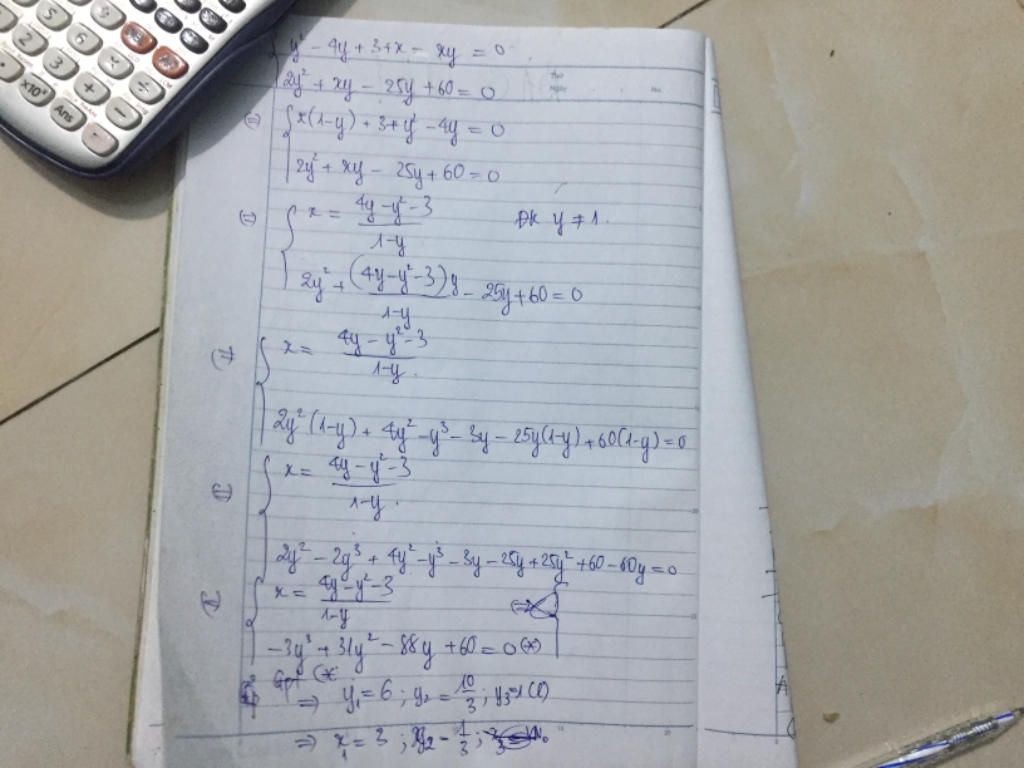 y² - 4y + 3 + x - xy = 0
2y² + xy - 25y + 60 = 0
(=) x(1-y) + 3 + y² - 4y = 0
2y² + xy - 25y + 60 = 0
x = (4y - y² - 3)/(1-y) ĐK y ≠ 1.
2y² + (4y - y² - 3)y/(1-y) - 25y + 60 = 0
x = (4y - y² - 3)/(1-y).
2y²(1-y) + 4y² - y³ - 3y - 25y(1-y) + 60(1-y) = 0
x = (4y - y² - 3)/(1-y).
2y² - 2y³ + 4y² - y³ - 3y - 25y + 25y² + 60 - 60y = 0
x = (4y - y² - 3)/(1-y)
-3y³ + 31y² - 88y + 60 = 0 (*)
Gpt (*:
⇒ y₁ = 6 ; y₂ = 10/3 ; y₃ = 1 (l)
⇒ x₁ = 3 ; x₂ - 1/3 ;
5
6
2
3
×
÷
+
-
×10ˣ
Ans
=